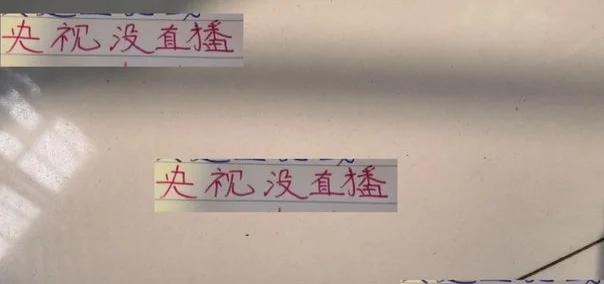 央视没直播
央视没直播